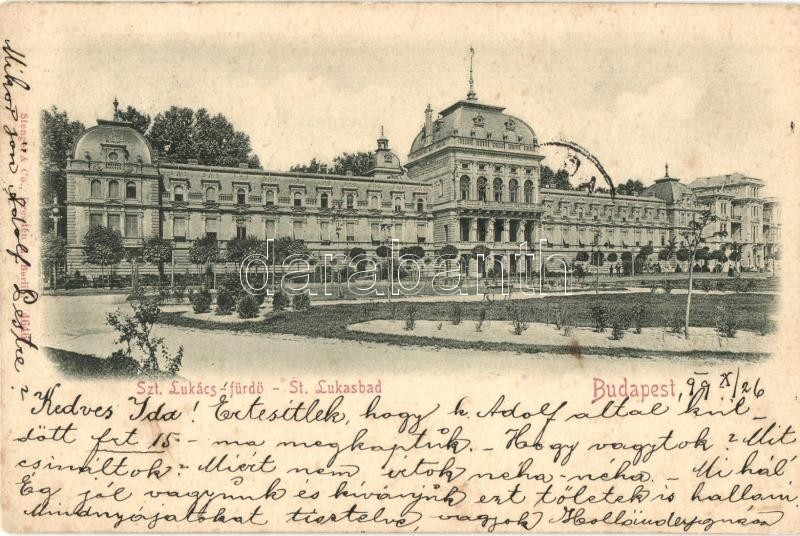 Mikor jön Adolf Pestre?
Stengel & Co., Dresden u. Berlin
darabanth.com
Szt. Lukács-fürdő - St. Lukasbad
Budapest, 99 X/26
Kedves Ida! Értesítlek, hogy k. Adolf által kül-
dött frt 15- ma megkaptuk. - Hogy vagytok? Mit
csináltok? Miért nem írtok néha-néha. - Mi hál'
Ég jól vagyunk és kívánjuk ezt tőletek is hallani
Mindnyájatokat tisztelve, vagyok